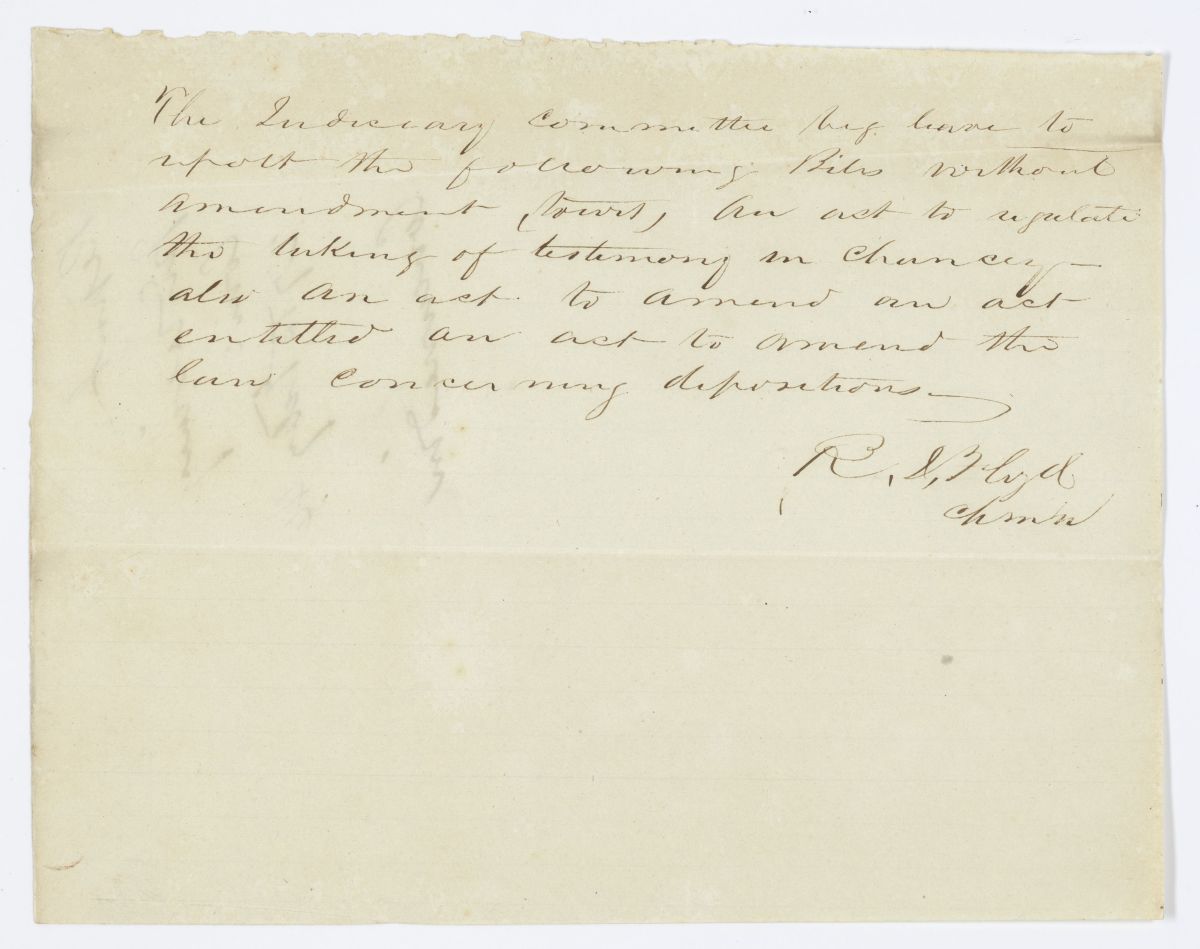 The Judiciary committee beg leave to
report the following Bills without
amendment, towit, An act to regulate
the taking of testimony in chancery –
also An act to amend an act
entitled an act to amend the
law concerning depositions.
Chmn